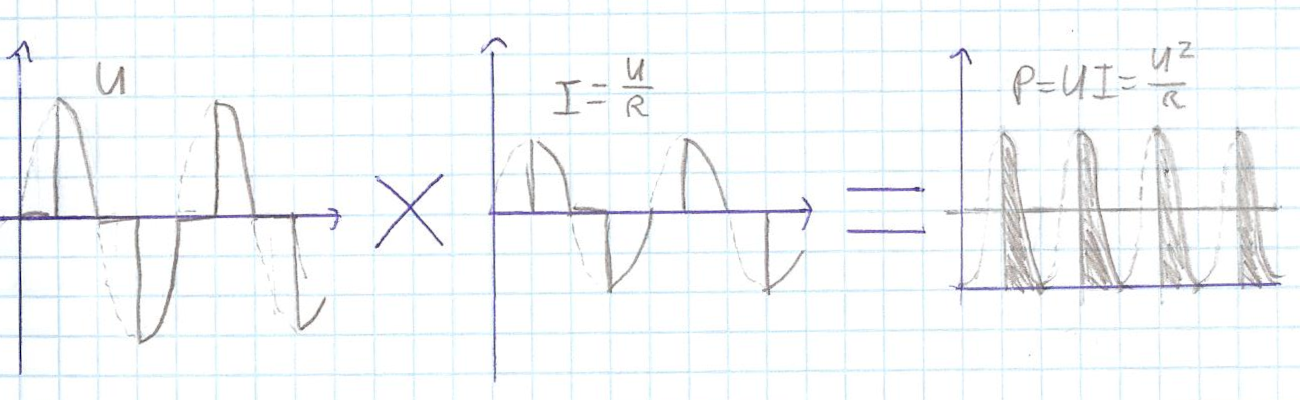 U
I=U/R
P=UI=U²/R